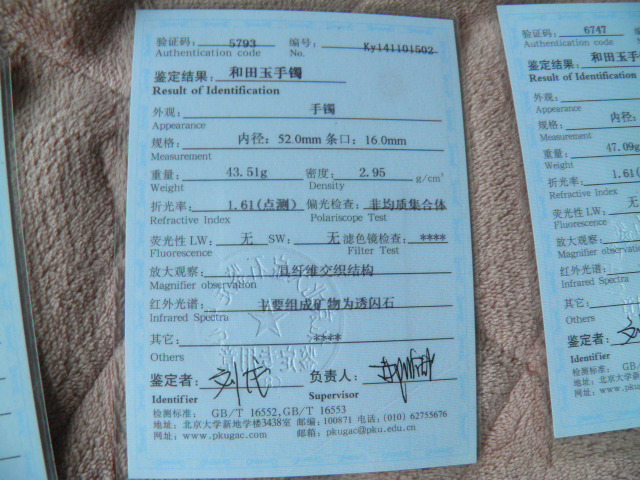 验证码: 5793 编号: Ky141101502
Authentication code No.
鉴定结果: 和田玉手镯
Result of Identification
外观: 手镯
Appearance
规格: 内径: 52.0mm 条口: 16.0mm
Measurement
重量: 43.51g 密度: 2.95 g/cm³
Weight Density
折光率: 1.61(点测) 偏光检查: 非均质集合体
Refractive Index Polariscope Test
荧光性 LW: 无 SW: 无 滤色镜检查: ****
Fluorescence Filter Test
放大观察: 具纤维交织结构
Magnifier observation
红外光谱: 主要组成矿物为透闪石
Infrared Spectra
其它: ****
Others
鉴定者: 负责人:
Identifier Supervisor
检测标准: GB/T 16552,GB/T 16553
地址: 北京大学新地学楼3438室 邮编: 100871 电话: (010) 62755676
网址: www.pkugac.com 邮箱: pkugac@pku.edu.cn
验证码: 6747
Authentication code
鉴定结果: 和田玉手
Result of Identification
外观:
Appearance
规格: 内径:
Measurement
重量: 47.09g
Weight
折光率: 1.61(
Refractive Index
荧光性 LW: 无
Fluorescence
放大观察:
Magnifier observation
红外光谱:
Infrared Spectra
其它:
Others
鉴定者:
Identifier
检测标准: GB/T
地址: 北京大学新
网址: www.p